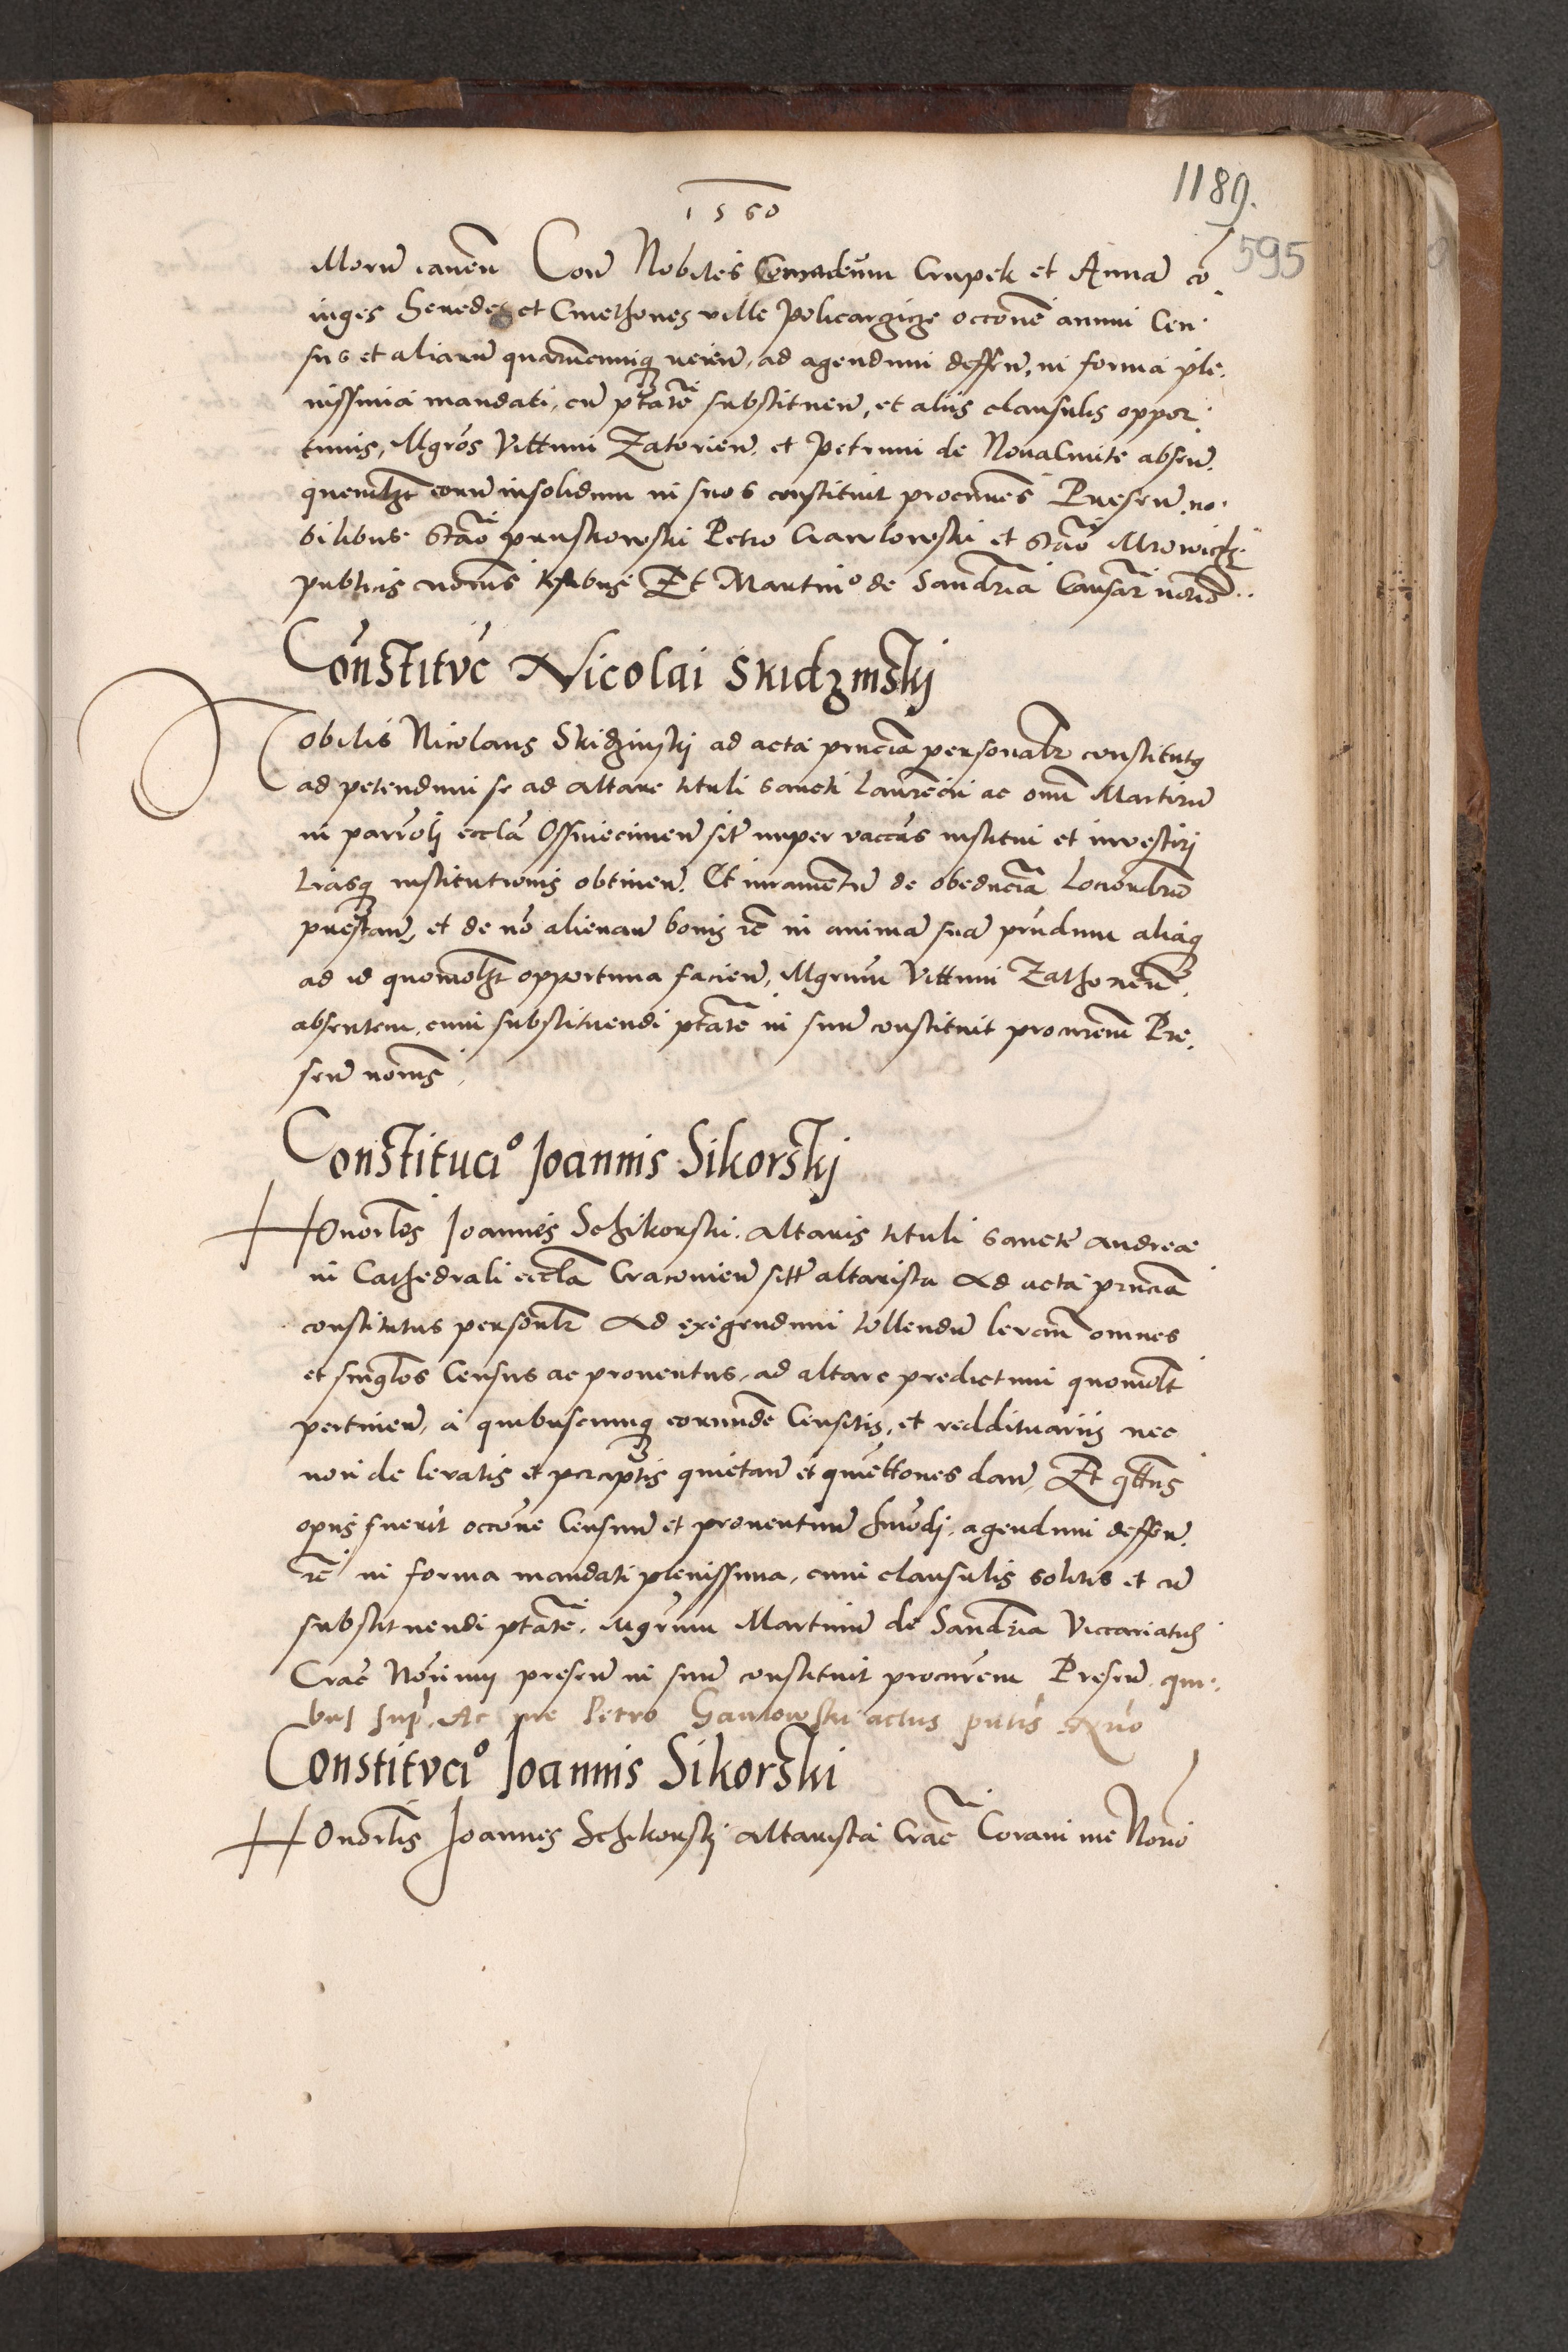 1560
1189.
595
Morum canen Con Nobiles Amadeum Crupek et Annã cõ
iuges heredes et Cmethones ville Policarzicze occõne annui Cen
sus et aliarũ quarũcunq rerũ, ad agendum deffen, in forma ple
nissima mandati, cũ ptãte substituen, et aliis clausulis oppor
tunis, Mgros Vittum Zatorien et Petrum de Noua Ciuite absen
quemlzt eorũ insolidum in suos constituit procures Presen no
bilibus Stão Pruskowski Petro Gawlowski et Stão Mrowicz
publicis notriis testibus Et Martino de Sandria Causar notrio
Constituc Nicolai Skidzinskj
Nobilis Nicolaus Skidzinskj ad acta pñcia personalr constitutq
ad petendum se ad altare tituli sancti Laurencii ac onm Martirũ
in parrolj eccla Ossuiecimen sit nuper vaccãs institui et investirj
Lrasq institutionis obtinen. Et iuramentũ de obediẽcia Loci ondrio
prestan, et de nõ alienan bonis rc in animã suã prñdum aliaq
ad id quomolzt opportuna facien, Mgrum Vittum Zathorien
absentem, cum substituendi ptãte in suũ constituit procurem Pre
sen notriis
Constitucio Joannis Sikorskj
Honorles Joannes Schikorski altaris tituli sancte Andreae
in Cathedrali eccla Cracouien sitt altarista Ad acta pñcia
constitutus personalr Ad exigendum tollendũ levan omnes
et singlos Census ac prouentus, ad altare predictum quomolt
pertinen, a quibuscunq eorunde Censitis, et reddituariis nec
non de levatis et perceptis quietan et quiettones dan, Et qttus
opus fuerit occõne Censuũ et prouentuum hmõdj agendum deffen
rc in forma mandati plenissima, cum clausulis solitis et cũ
substituendi ptãte. Mgrum Martinũ de Sandria Viccariatus
Crac Notrium presen in suũ constituit procurem Presen qui
bus sup. Ac me Petro Gawlowski actus pñtis
Constitucio Joannis Sikorski
Honorlis Joannes Schikorskj altarista Crac Coram me Notrio